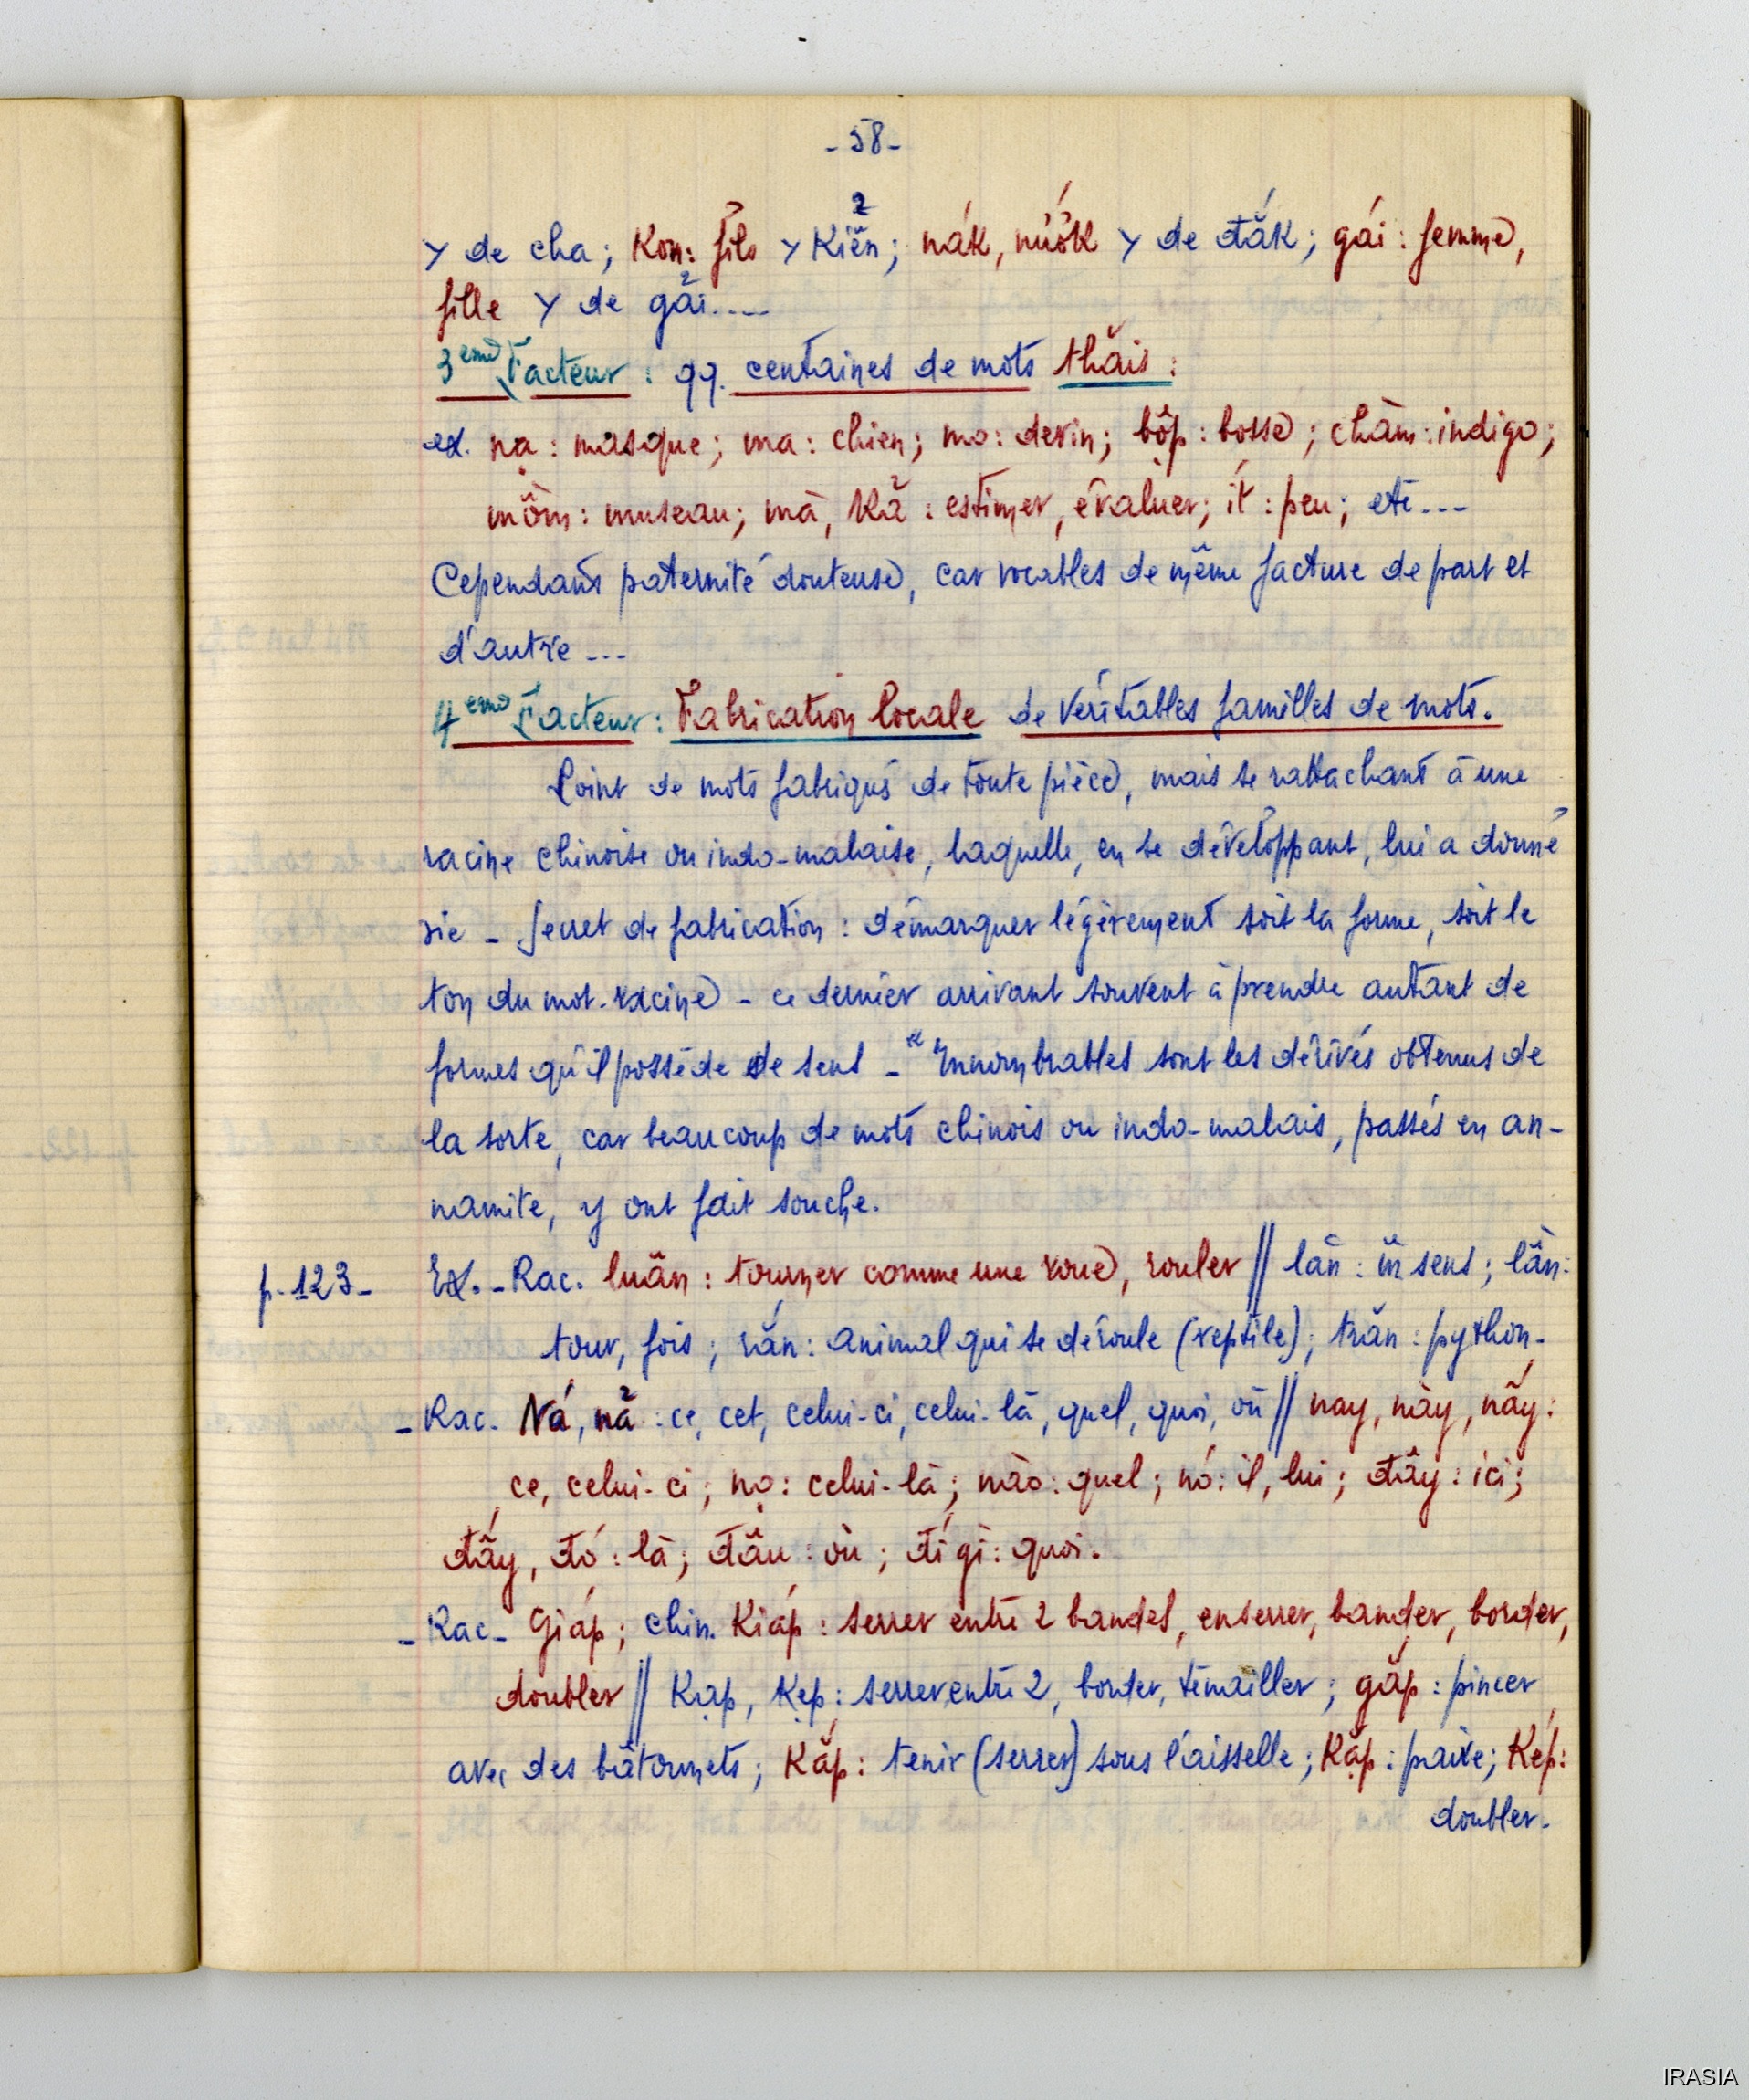 - 58 -
Y de cha; Kon: fils Y Kiển; nák, núók Y de đắk; gái: femme,
fille Y de gải....
3ème Facteur: qq. centaines de mots thăis:
ex. nạ: masque; ma: chien; mo: devin; bộp: bosse; chàm: indigo;
mồm: museau; mà, Kả: estimer, évaluer; ít: peu; etc...
Cependant paternité douteuse, car vocables de même facture de part et
d'autre...
4ème Facteur: Fabrication locale de véritables familles de mots.
Point de mots fabriqués de toute pièce, mais se rattachant à une
racine chinoise ou indo-malaise, laquelle, en se développant, lui a donné
vie - Secret de fabrication: démarquer légèrement soit la forme, soit le
ton du mot-racine - ce dernier arrivant souvent à prendre autant de
formes qu'il possède de sens - "Innombrables sont les dérivés obtenus de
la sorte, car beaucoup de mots chinois ou indo-malais, passés en an-
namite, y ont fait souche.
p. 123 - Ex. - Rac. luân: tourner comme une roue, rouler // lăn: m̂ sens; lần:
tour, fois; rắn: animal qui se déroule (reptile); trăn: python -
- Rac. Ná, nả: ce, cet, celui-ci, celui-là, quel, quoi, où // nay, này, nấy:
ce, celui-ci; nọ: celui-là; nào: quel; nó: il, lui; đây: ici;
đấy, đó: là; đâu: où; đí gì: quoi.
- Rac - Giáp; chin. Kiáp: serrer entre 2 bandes, enserrer, bander, border,
doubler // Kạp, Kẹp: serrer entre 2, border, tenailler; gắp: pincer
avec des bâtonnets; Kắp: tenir (serrer) sous l'aisselle; Kặp: paire; Kép:
doubler.
IRASIA